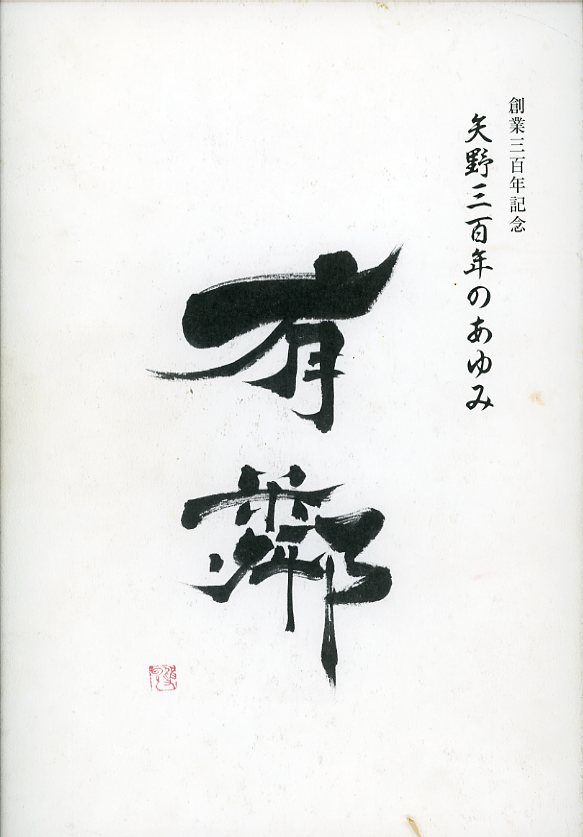 創業三百年記念
矢野三百年のあゆみ
有鄰